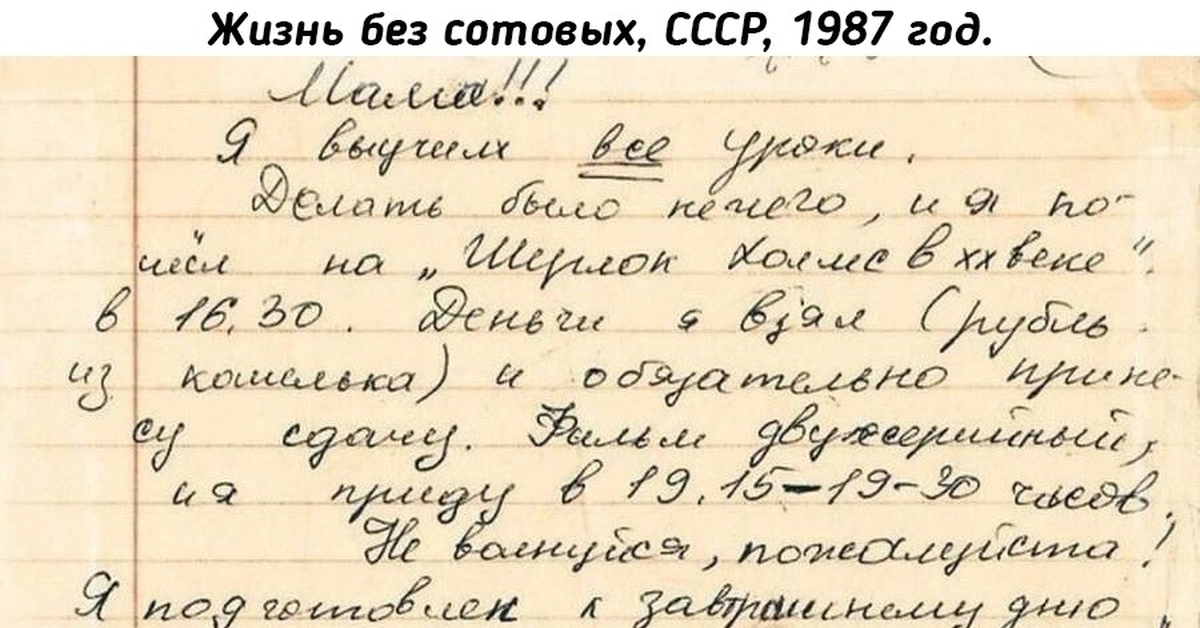 Жизнь без сотовых, СССР, 1987 год.
Мама!!!
Я выучил все уроки.
Делать было нечего, и я по-
шёл на „Шерлок Холмс в xx веке".
в 16.30. Деньги я взял (рубль
из кошелька) и обязательно прине-
су сдачу. Фильм двухсерийный,
и я приду в 19.15-19-30 часов.
Не волнуйся, пожалуйста!
Я подготовлен к завтрашнему дню